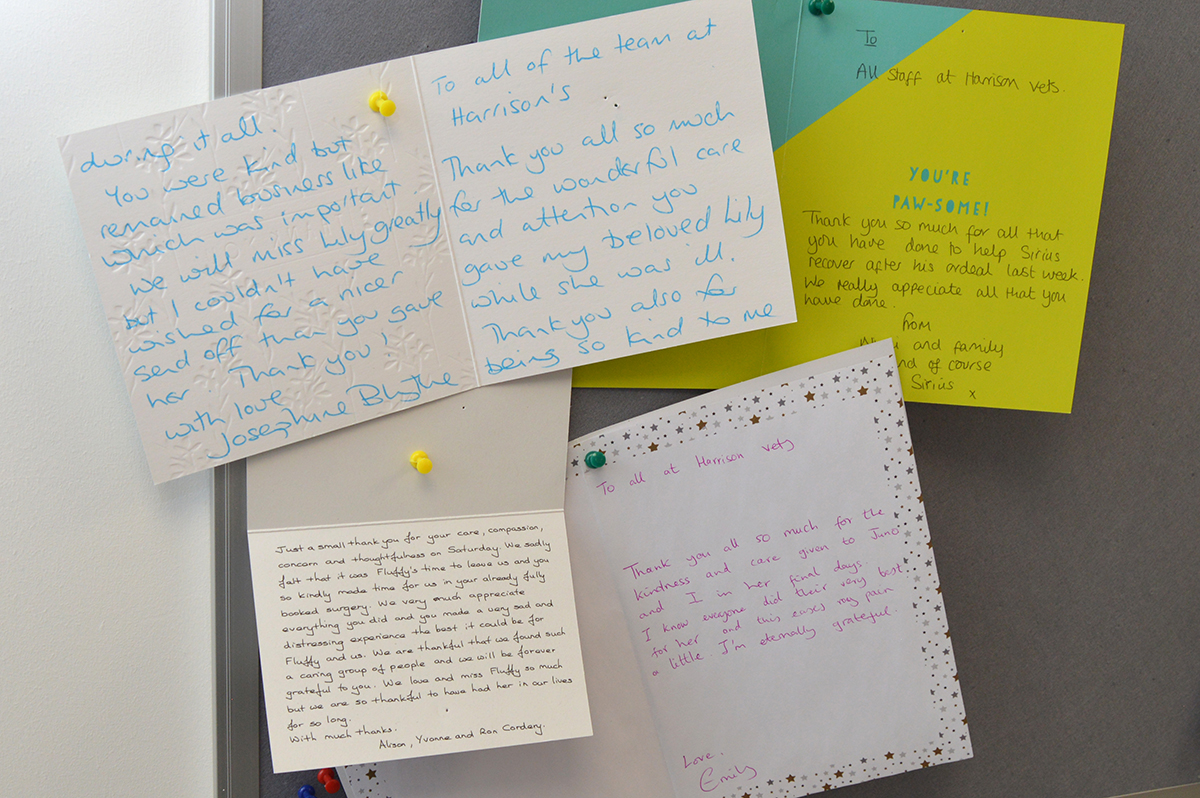 during it all.
You were kind but
remained business like
which was important.
We will miss Lily greatly
but I couldn't have
wished for a nicer
send off than you gave
her. Thank you!
with love
Josephine Blythe
To all of the team at
Harrison's
Thank you all so much
for the wonderful care
and attention you
gave my beloved Lily
while she was ill.
Thank you also for
being so kind to me
To
All Staff at Harrison vets.
YOU'RE
PAW-SOME!
Thank you so much for all that
you have done to help Sirius
recover after his ordeal last week.
We really appeciate all that you
have done.
from
and family
and of course
Sirius
x
Just a small thank you for your care, compassion,
concern and thoughtfulness on Saturday. We sadly
felt that it was Fluffy's time to leave us and you
so kindly made time for us in your already fully
booked surgery. We very much appreciate
everything you did and you made a very sad and
distressing experience the best it could be for
Fluffy and us. We are thankful that we found such
a caring group of people and we will be forever
grateful to you. We love and miss Fluffy so much
but we are so thankful to have had her in our lives
for so long.
With much thanks.
Alison, Yvonne and Ron Cordery.
To all at Harrison vets
Thank you all so much for the
kindness and care given to Juno
and I in her final days.
I know everyone did their very best
for her and this eases my pain
a little. I'm eternally grateful.
Love.
Emily